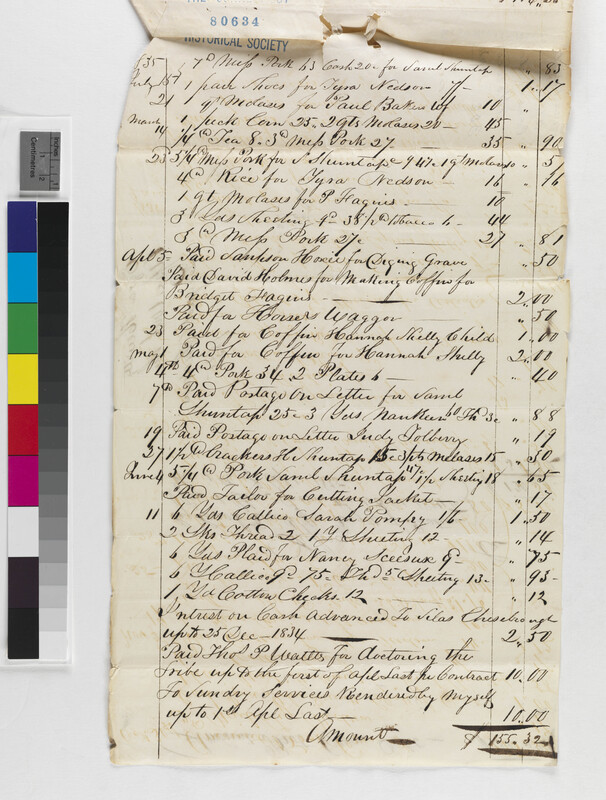 80634
HISTORICAL SOCIETY
35 7 lb Mess Pork 63 Cash 20c for Saml Shuntap " 83
1 pair Shoes for Tyra Nedson 7/- 1 " 17
2 1 gl Molases for Paul Baker 10
March 1 peck Corn 25 " 2 qts Molases 20 — 45
14 Tea 8 " 3 lb Mess Pork 27 35 " 90
23 5 1/4 lb Mess Pork for S Shuntap 47 " 1 gl Molases " 5
4 lb Rice for Tyra Nedson — 16 " 16
1 qt Molases for P Fagins — 10
3 Yds Sheeting 38 Tobacco 6 — 44
3 lb Mess Pork 27c — 27 " 81
Apl 5 Paid Sampson Hoxie for Diging Grave " 50
Paid David Holmes for Making Coffin for
Bridget Fagins — 2 " 00
Paid for Horse & Waggon " 50
23 Paid for Coffin Hannah Shelly Child 1 " 00
May 1 Paid for Coffin for Hannah Shelly 2 " 00
4 lb Pork 34 " 2 Plates 6 — " 40
7th Paid Postage on Letter for Saml
Shuntap 25c 3 Yds Nankeen 60 Thd 3c " 88
19 Paid Postage on Letter Judy Tolbury " 19
27 Crackers H Shuntap 15c 3 pts Molases 15 " 50
June 4 5 1/4 lb Pork Saml Shuntap 47 Sheeting 18 " 65
Paid Tailor for Cutting Jacket — " 17
11 6 Yds Callico Sarah Pompy 1/6 1 " 50
2 Sks Thread 2 1 Yd Sheeting 12 — " 14
6 Yds Plaid for Nancy " 75
6 Y Callico 75 — Thd 5 Sheeting 13c " 93
1 Yd Cotton Checks 12 " 12
Intrest on Cash Advanced To Silas Chesebrough
up to 25 Dec — 1834 2 " 50
Paid Thos P Wattles for doctoring the
Tribe up to the first of April Last pr Contract 10 " 00
To Sundry Services Rendered by Myself
up to 1st Apil Last — 10 " 00
Amount $ 155.32